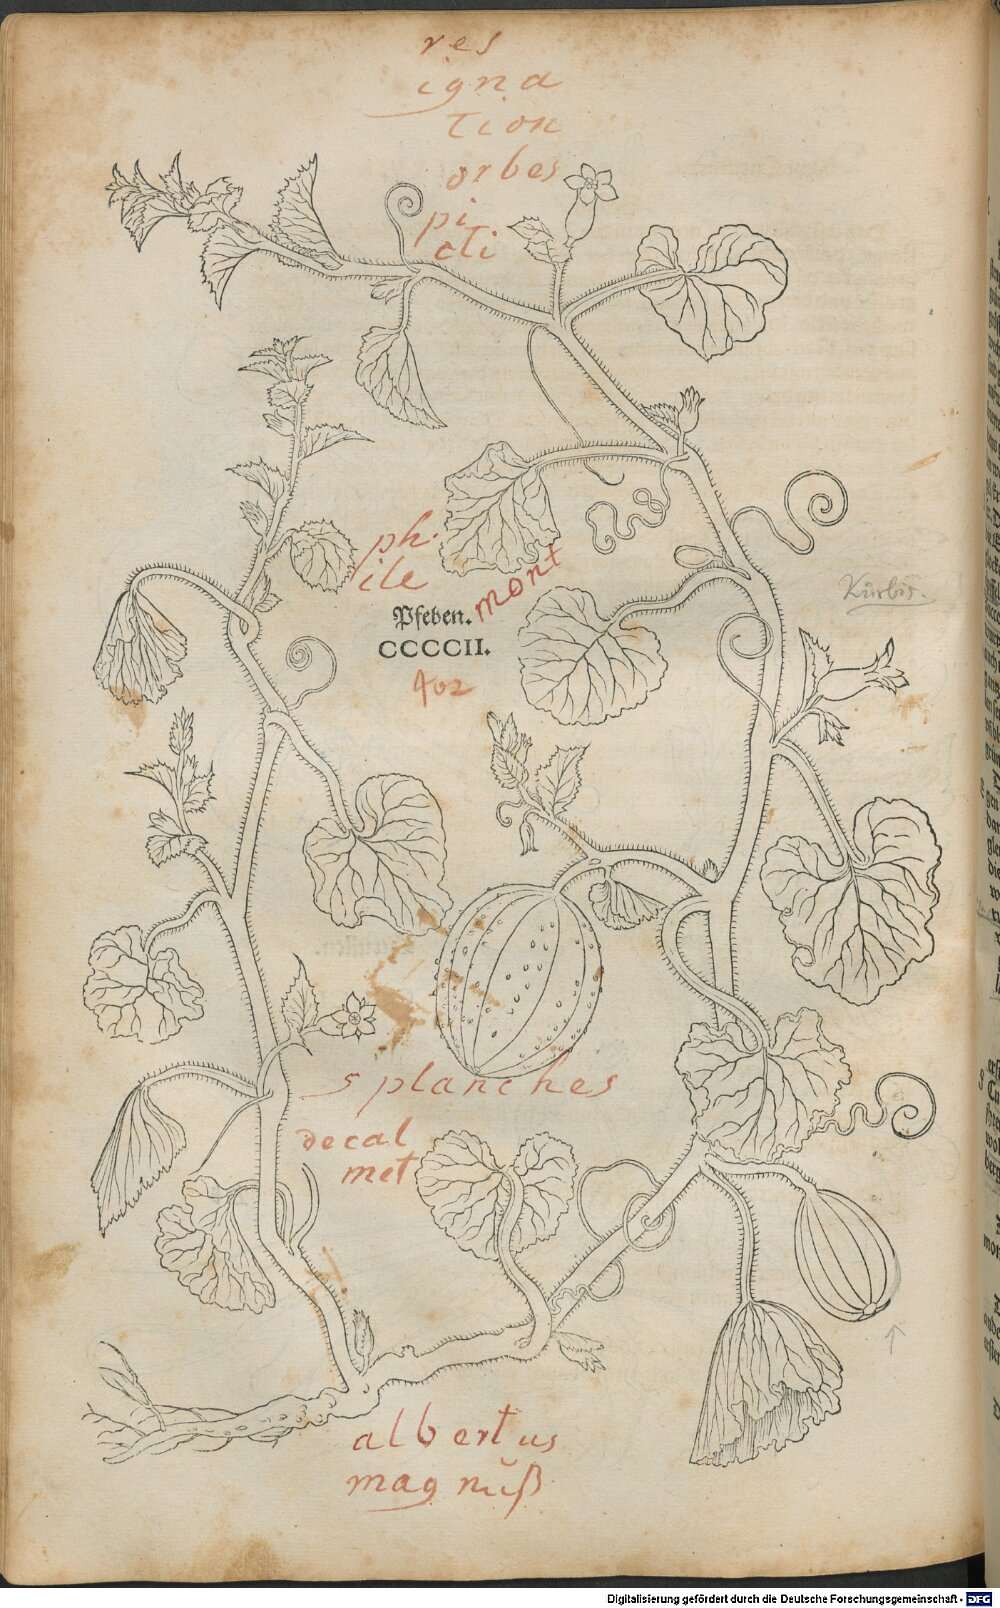 res
igna
tion
orbes
pi
cti
ph.
ile
mont
Pfeben.
CCCCII.
402
Kürbis.
5 planches
decal
met
albertus
magnuß
Digitalisierung gefördert durch die Deutsche Forschungsgemeinschaft - DFG